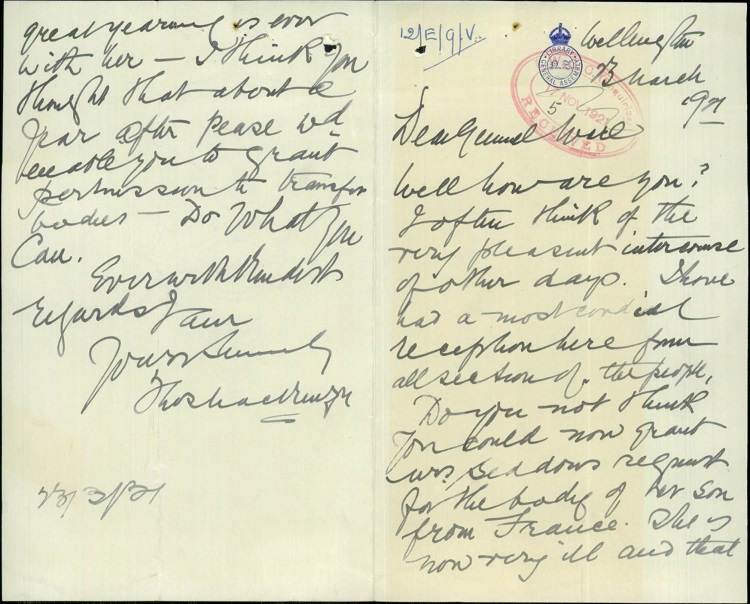 12/E/9/V.
LIBRARY
GENERAL ASSEMBLY
NOV 1921
RECEIVED
5
Wellington
March
1921
Dear General Ware
Well how are you?
I often think of the
very pleasant intercourse
of other days. I have
had a most cordial
reception here from
all section of the people,
Do you not think
you could now grant
Mrs Seddons request
for the body of her son
from France. She is
now very ill and that
great yearning is ever
with her – I think you
thought that about a
year after peace wd
enable you to grant
permission to transfer
bodies – Do What you
Can.
Ever with kindest
regards I am
Yours Sincerely
Thos Mackenzie